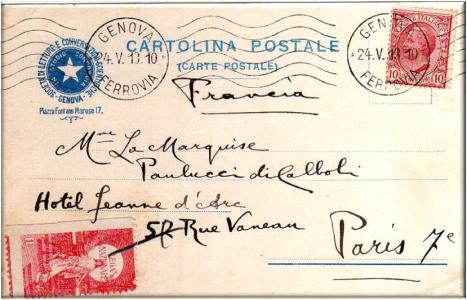 GENOVA
24.V.13.10
FERROVIA
GENOVA
24.V.13.10
FERROVIA
SOCIETÀ DI LETTURE E CONVERSAZIONI SCIENTIFICHE
GENOVA
Piazza Fontane Marose 17.
CARTOLINA POSTALE
(CARTE POSTALE)
POSTE ITALIANE
10 10
Francia
Mme La Marquise
Paulucci di Calboli
Hotel Jeanne d'Arc
59 Rue Vaneau
Paris 7e